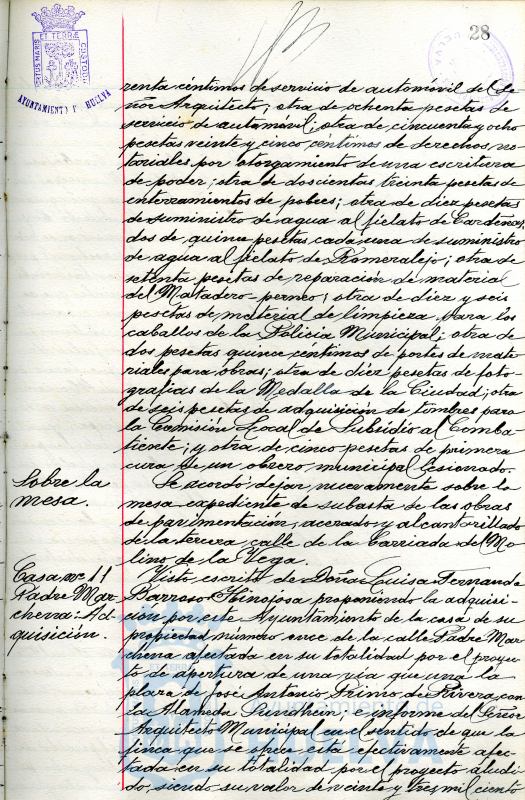 28
PORTUS MARIS ET TERRÆ CUSTODIA
AYUNTAMIENTO DE HUELVA
renta céntimos de servicio de automóvil del Se-
ñor Arquitecto; otra de ochenta pesetas de
servicio de automóvil; otra de cincuenta y ocho
pesetas veinte y cinco céntimos de derechos no-
toriales por otorgamiento de una escritura
de poder; otra de doscientas treinta pesetas de
enterramientos de pobres; otra de diez pesetas
de suministro de agua al fielato de Cardeñas;
dos de quince pesetas cada una de suministro
de agua al fielato de Romeralejo; otra de
setenta pesetas de reparación de material
del Matadero-perneo; otra de diez y seis
pesetas de material de limpieza para los
caballos de la Policía Municipal; otra de
dos pesetas quince céntimos de portes de mate-
riales para obras; otra de diez pesetas de foto-
grafías de la Medalla de la Ciudad; otra
de seis pesetas de adquisición de timbres para
la Comisión Local de Subsidio al Comba-
tiente; y otra de cinco pesetas de primera
cura de un obrero municipal lesionado.
Sobre la
mesa.
Se acordó dejar nuevamente sobre la
mesa expediente de subasta de las obras
de pavimentación, acerado y alcantarillado
de la tercera calle de la Barriada del Mo-
lino de la Vega.
Casa nº 11
Padre Mar-
chena: Ad-
quisición.
Visto escrito de Doña Luisa Fernanda
Barroso Hinojosa proponiendo la adquisi-
ción por este Ayuntamiento de la casa de su
propiedad número once de la calle Padre Mar-
chena afectada en su totalidad por el proyec-
to de apertura de una vía que una la
plaza de José Antonio Primo de Rivera con
la Alameda Sundheim; e informe del Señor
Arquitecto Municipal en el sentido de que la
finca que se ofrece está efectivamente afec-
tada en su totalidad por el proyecto aludi-
do, siendo su valor de veinte y tres mil ciento